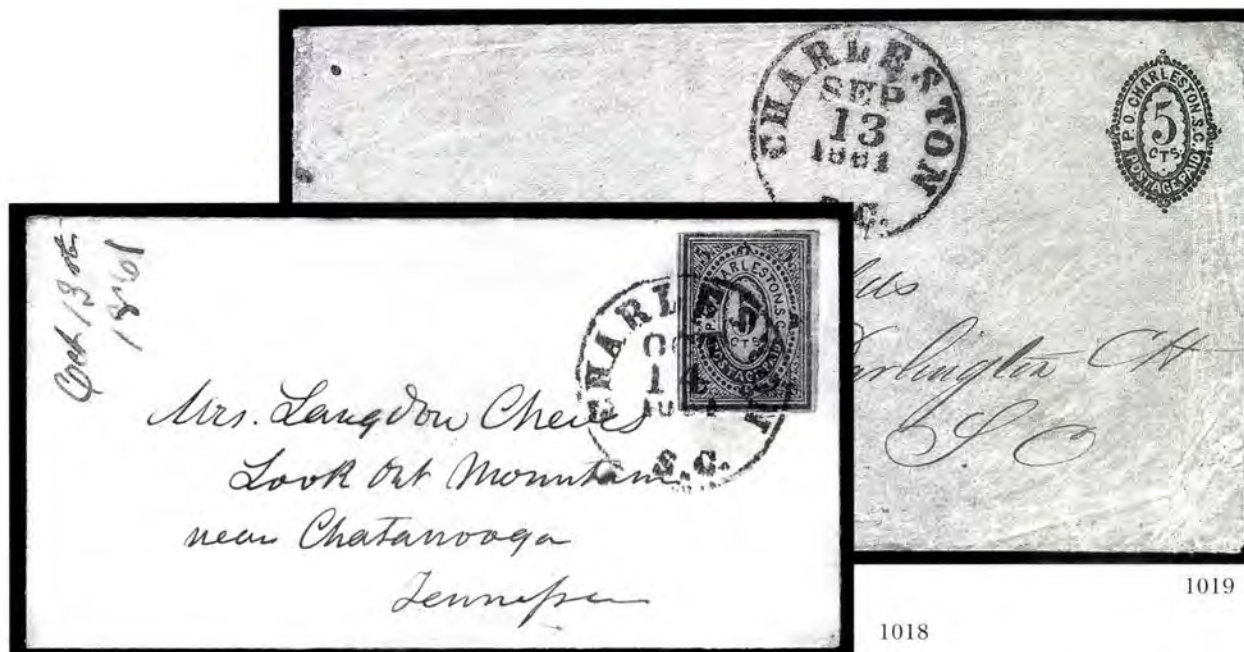 CHARLESTON
SEP
13
1861
S.C.
P.O. CHARLESTON, S.C.
5
CTS
POSTAGE PAID
Darlington CH
S C
1019
Oct 13th
1861
CHARLESTON
1861
S.C.
P.O. CHARLESTON, S.C.
5
CTS
POSTAGE PAID
Mrs. Langdon Cheves
Look Out Mountain
near Chatanooga
Tennessee
1018